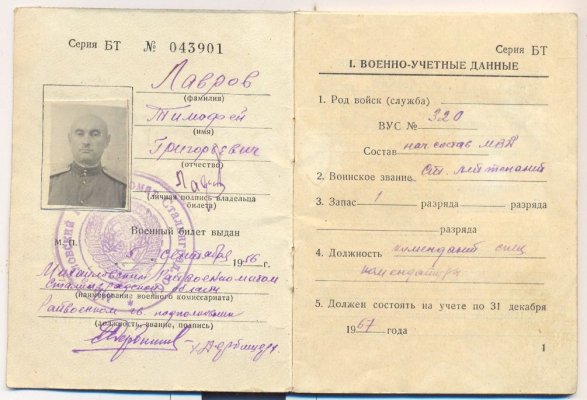 Серия БТ № 043901
Лавров
(фамилия)
Тимофей
(имя)
Григорьевич
(отчество)
(личная подпись владельца
билета)
Военный билет выдан
М. П.
сентября 1956 г.
Михайловским Райвоенкоматом
Сталинградской области
(наименование военного комиссариата)
Райвоенком подполковник
(должность, звание, подпись)
Серия БТ
I. ВОЕННО-УЧЕТНЫЕ ДАННЫЕ
1. Род войск (служба)
ВУС № 320
Состав нач состав МВД
2. Воинское звание Ст. лейтенант
3. Запас 1 разряда разряда
разряда
4. Должность комендант спец
комендатуры
5. Должен состоять на учете по 31 декабря
1967 года
1